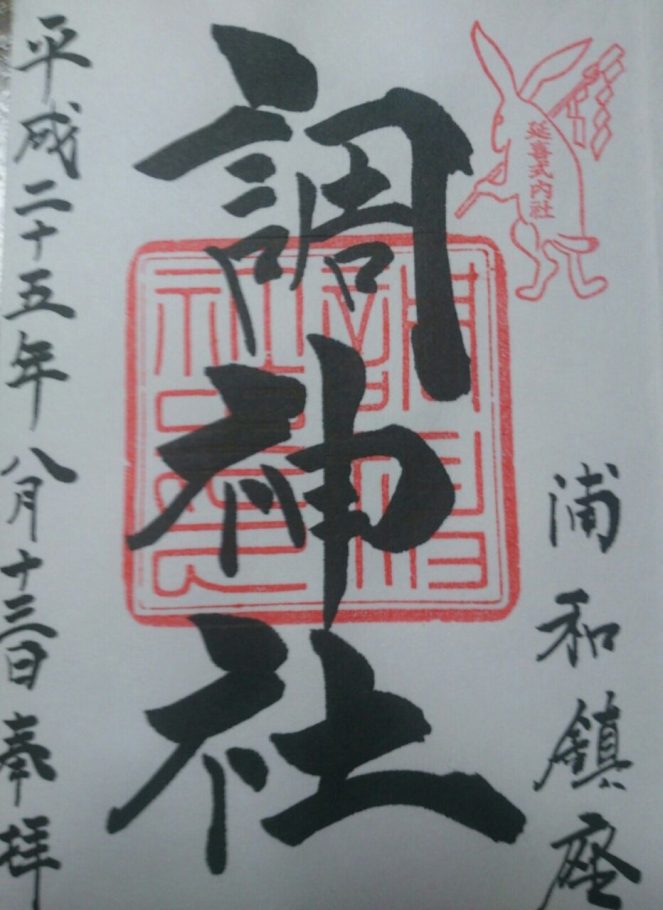 延喜式内社
浦和鎮座
調神社
平成二十五年八月十三日奉拝